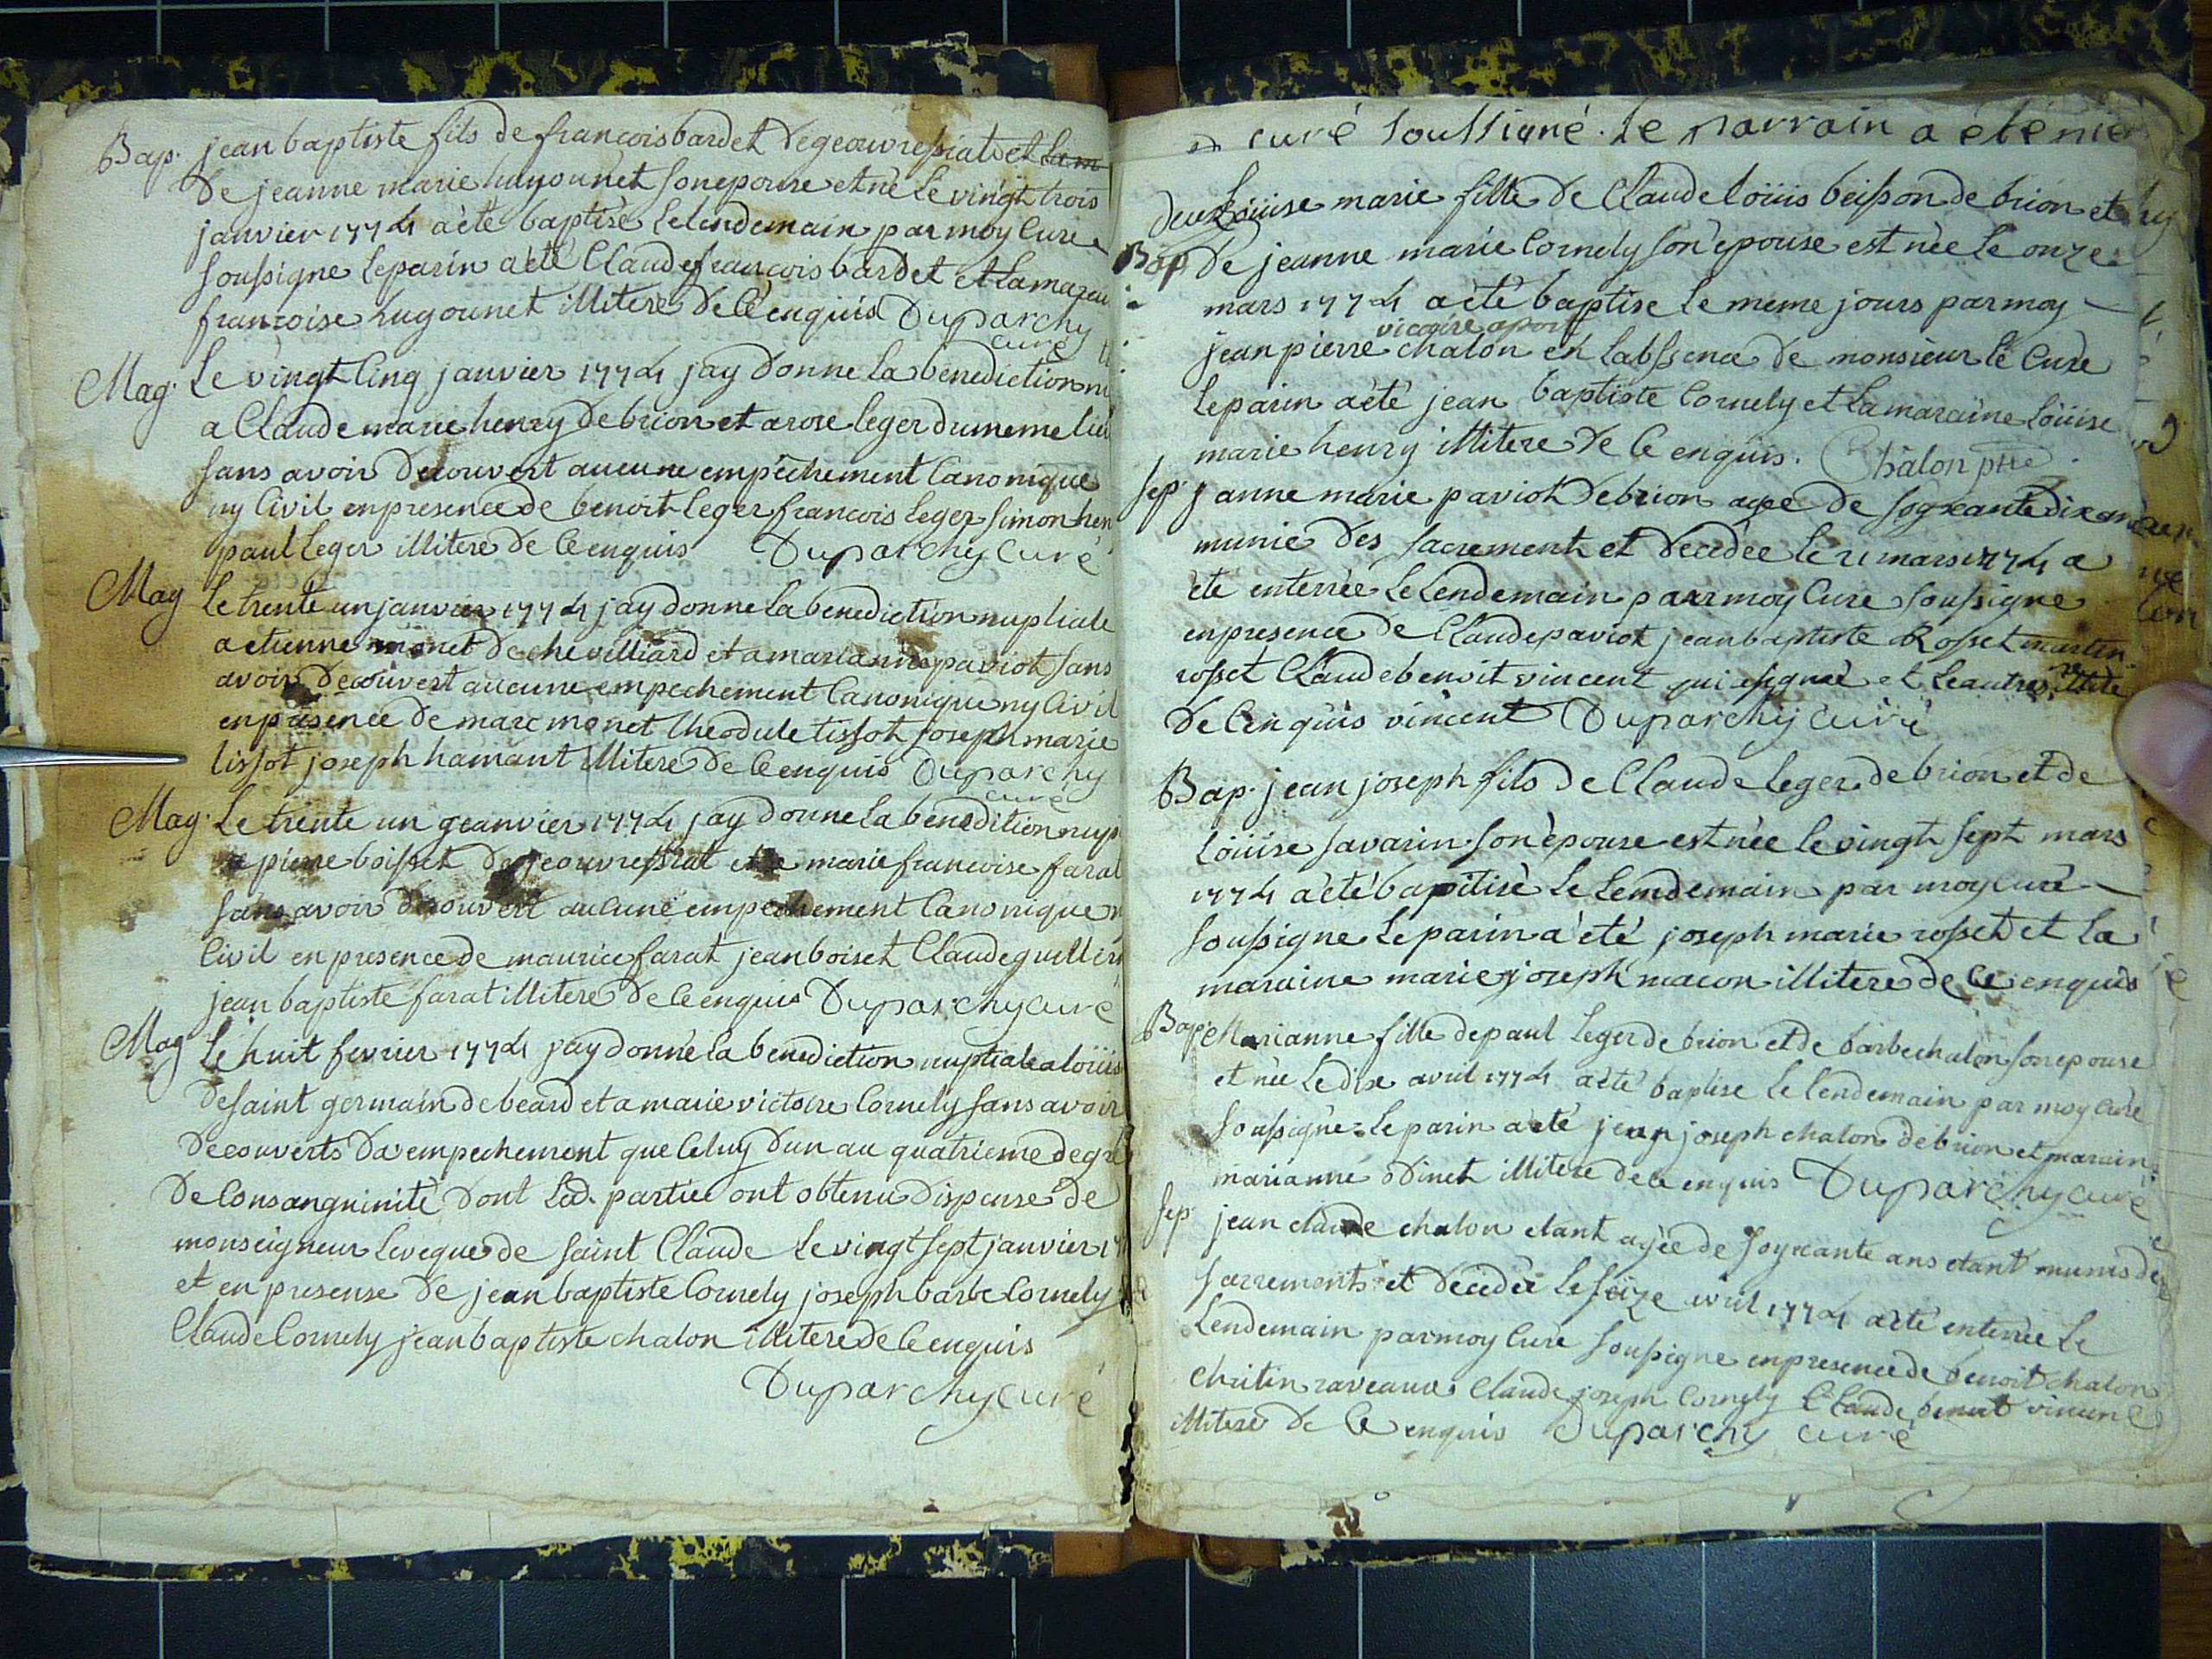 Bap. jean baptiste fils de francois bardet de geouvressiat et la m
de jeanne marie hugounet son epouse et né le vingt trois
janvier 1774 a èté baptisè le lendemain par moy Curé
soussigne le parin a èté Claude francois bardet et la marai
francoise hugounet illiteré de Ce enquis Duparchy
curé
Mag. Le vingt Cinq janvier 1774 jay donne la benediction nu
a Claude marie henry de brion et a rose leger du meme lieu
sans avoir decouvert aucune empêchement Canonique
ny Civil en presence de benoit leger francois leger simon hen
paul leger illiteré de Ce enquis Duparchy Curé
Mag Le trente un janvier 1774 jay donne la benediction nuptiale
a etienne monet de chevilliard et a marianne paviot sans
avoir decouvert aucune empechement Canonique ny Civil
en presence de marc monet theodule tissot joseph marie
tissot joseph hamant illiteré de Ce enquis Duparchy
curé
Mag. Le trente un geanvier 1774 jay donne la benedition nup
a pierre boisset de jeouvressiat et a marie francoise farat
sans avoir decouvert aucune empechement Canonique n
Civil en presence de maurice farat jean boiset Claude guillier
jean baptiste farat illiteré de Ce enquis Duparchy curé
Mag Le huit fevrier 1774 jay donné la benediction nuptiale a loüis
de saint germain de beard et a marie victoire Cornely sans avoir
decouverts da empechement que Celuy dun au quatrieme degré
de Consanguinité dont Led. partiee ont obtenu dispense de
monseigneur leveque de saint Claude le vingt sept janvier 17
et en presense de jean baptiste Cornely joseph barbe Cornely
Claude Cornely jean baptiste chalon illiteré de Ce enquis
Duparchy curé
curé soussigné. Le parrain a été
Loüise marie fille de Claude loüis beisson de brion et
Bap de jeanne marie Cornely son epouse est née le onze
mars 1774 a èté baptise le meme jours par moy
vicaire
jean pierre chalon en labssence de monsieur le Curé
le parin a èté jean baptiste Cornely et la maraine Loüise
marie henry illitere de Ce enquis. Chalon ptre
Sep. janne marie paviot de brion agée de soyxante dix an
munie des sacrement et decedée le 21 mars 1774 a
èté enterrée le lendemain par moy Curé soussigne
en presence de Claude paviot jean baptiste Rosset martin
rosset Claude benoit vincent qui signé et le autres illiteré
de Cenquis vincent Duparchy curé
Bap. jean joseph fils de Claude leger de brion et de
Loüise savarin son èpouse est née le vingt sept mars
1774 a èté bapitisé le lendemain par moy curé
soussigne le parin a èté joseph marie rosset et la
maraine marie joseph macon illiteré de Ce enquis
Bap. Marianne fille de paul leger de brion et de barbe chalon son epouse
et née le dix avril 1774 a èté baptise le lendemain par moy Curé
soussigné le parin a èté jean joseph chalon de brion et marain
marianne odinet illiteré de Ce enquis Duparchy curé
Sep. jean claude chalon etant agée de soyxante ans etant munis de
sacrements et decedée le seize avril 1774 a èté enterrée le
lendemain parmoy Curé soussigne en presence de benoit chalon
raveaux Claude joseph Cornely Claude benoit vincent
illiteré de Ce enquis Duparchy curé